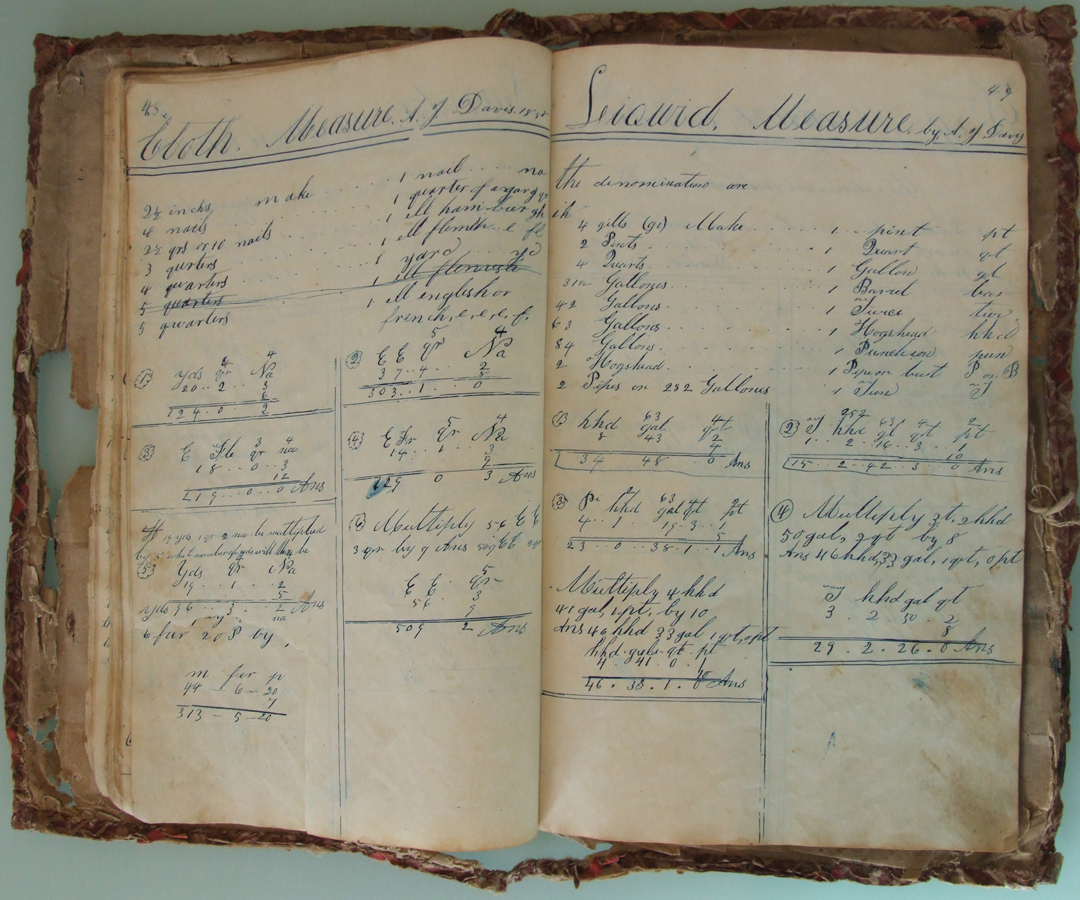 48
Cloth. Measure. A. Y Davis.
2½ inchs, make 1 nail na
4 nails 1 quarter of a yard qr
2½ qrs or 10 nails 1 Ell ham-burgh
3 qurters 1 ell flemish e fl
4 quarters 1 yard yd
5 quarters 1 ell flemish
5 qwarters 1 ell english or
french, e. e. e. f.
4
(1) yds qr Na
20 .. 2 .. 3
6
124 .. 0 .. 2
5 4
(2) E E qr Na
37 .. 4 .. 2
8
303 .. 1 .. 0
3 4
(3) E Fle qr na
18 .. 0 .. 3
12
219 .. 0 .. 0 Ans
5 4
(4) E Fr qr Na
14 .. 1 .. 3
9
129 0 3 Ans
19 yds 1 qr 2 na be multiplied
by 5 what number of yds will there be
(5) Yds qr Na
19 .. 1 .. 2
5
yds 96 .. 3 .. 2 Ans
na
6 fur 20 P by
m fur p
44 - 6 - 20
7
313 - 5 - 20
(6) Multiply 56 E E
3 qr by 9 Ans 509 EE 2 qr
5
E E qr
56 .. 3
9
509 2 Ans
49
Leiquid. Measure. by A. Y Davis
the denomination are
ih
4 gills (gi) Make 1 pint pt
2 Pints 1 Quart qt
4 Quarts 1 Gallon gl
31½ Gallones 1 Barrel bar
42 Gallons 1 Tierce tier
63 Gallons 1 Hogshead hhd
84 Gallons 1 Puncheon pun
2 Hogshead 1 Pipe or butt P or B
2 Pipes or 252 Gallones 1 Tun T
63 4
(1) hhd gal qrt
8 43 2
4
34 48 0 Ans
252 63 4 2
(2) T hhd gl qt pt
1 .. 2 .. 16 .. 3 ..
10
15 .. 2 .. 42 .. 3 0 Ans
2 63 4 2
(3) Pi hhd gal qt pt
4 .. 1 .. 15 .. 3 .. 1
5
23 .. 0 .. 38 .. 1 .. 1 Ans
Multiply 4 hhd
41 gal, 1 pt, by 10
Ans 46 hhd 33 gal 1 qrt, 0 pt
hhd gals qt pt
4 .. 41 0 1
10
46 . 38 . 1 . 0 Ans
(4) Multiply 3t, 2 hhd
50 gal, 2 qt by 8
Ans 46 hhd, 33 gal, 1 qrt, 0 pt
T hhd gal qt
3 . 2 . 50 . 2
8
29 . 2 . 26 . 0 Ans